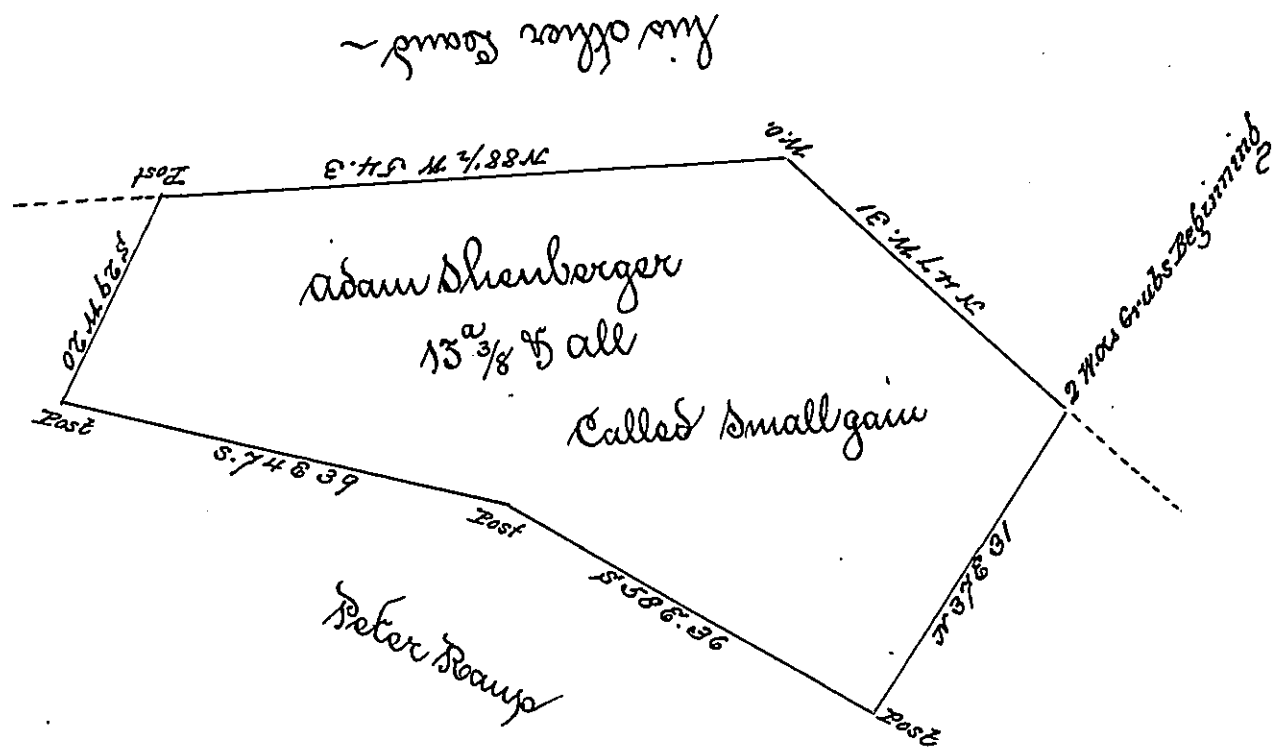 his other Land ~
Post
N88 1/2 W 54.3
W.o.
2 W.Oas Grubs Beginning
N47 W.31
S29 W 20
Adam Shenberger
13a 3/8 & all
Called Smallgain
Post
S.74 E 39
Post
S 58 E.36
N 37 E 31
Post
Peter